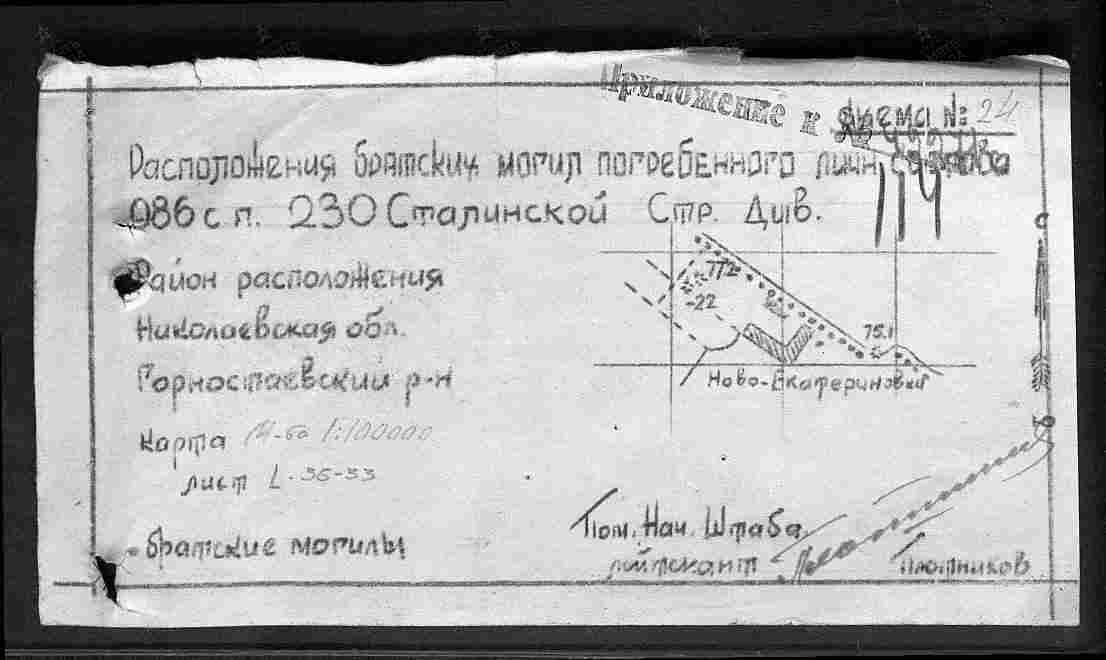 Приложение к
Схема №: 24
Расположения братских могил погребенного личн состава
986 с п. 230 Сталинской Стр. Див.
114
Район расположения
Николаевская обл.
Горностаевский р-н
Карта М-ба 1:100000
лист L-36-33
братские могилы
77.2
-22
75.1
Ново-Екатериновкий
Пом. Нач. Штаба
лейтенант Плотников